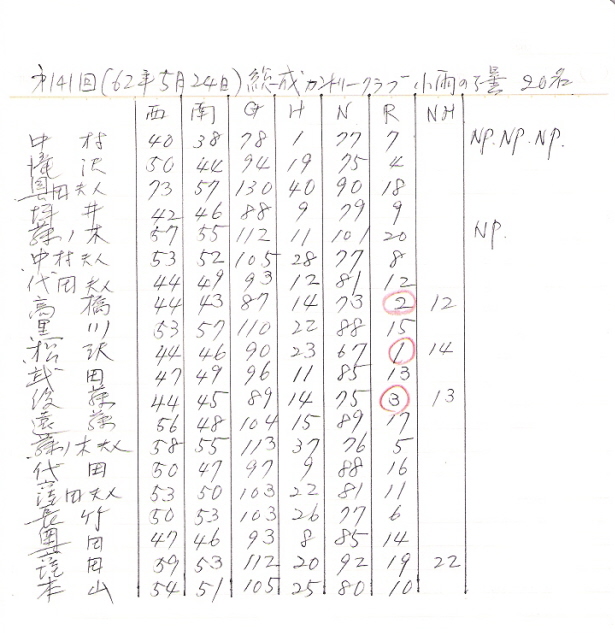 第141回(62年5月24日)総成カントリークラブ 小雨のち曇 20名
西 南 G H N R NH
中村 40 38 78 1 77 7 NP. NP. NP.
滝沢 50 44 94 19 75 4
奥田夫人 73 57 130 40 90 18
井 42 46 88 9 79 9
木 57 55 112 11 101 20 NP.
中村夫人 53 52 105 28 77 8
代田夫人 44 49 93 12 81 12
高橋 44 43 87 14 73 2 12
黒川 53 57 110 22 88 15
松沢 44 46 90 23 67 1 14
武田 47 49 96 11 85 13
後藤 44 45 89 14 75 3 13
遠藤 56 48 104 15 89 17
木夫人 58 55 113 37 76 5
代田 50 47 97 9 88 16
窪田夫人 53 50 103 22 81 11
長竹 50 53 103 26 77 6
奥田 47 46 93 8 85 14
窪田 59 53 112 20 92 19 22
本山 54 51 105 25 80 10